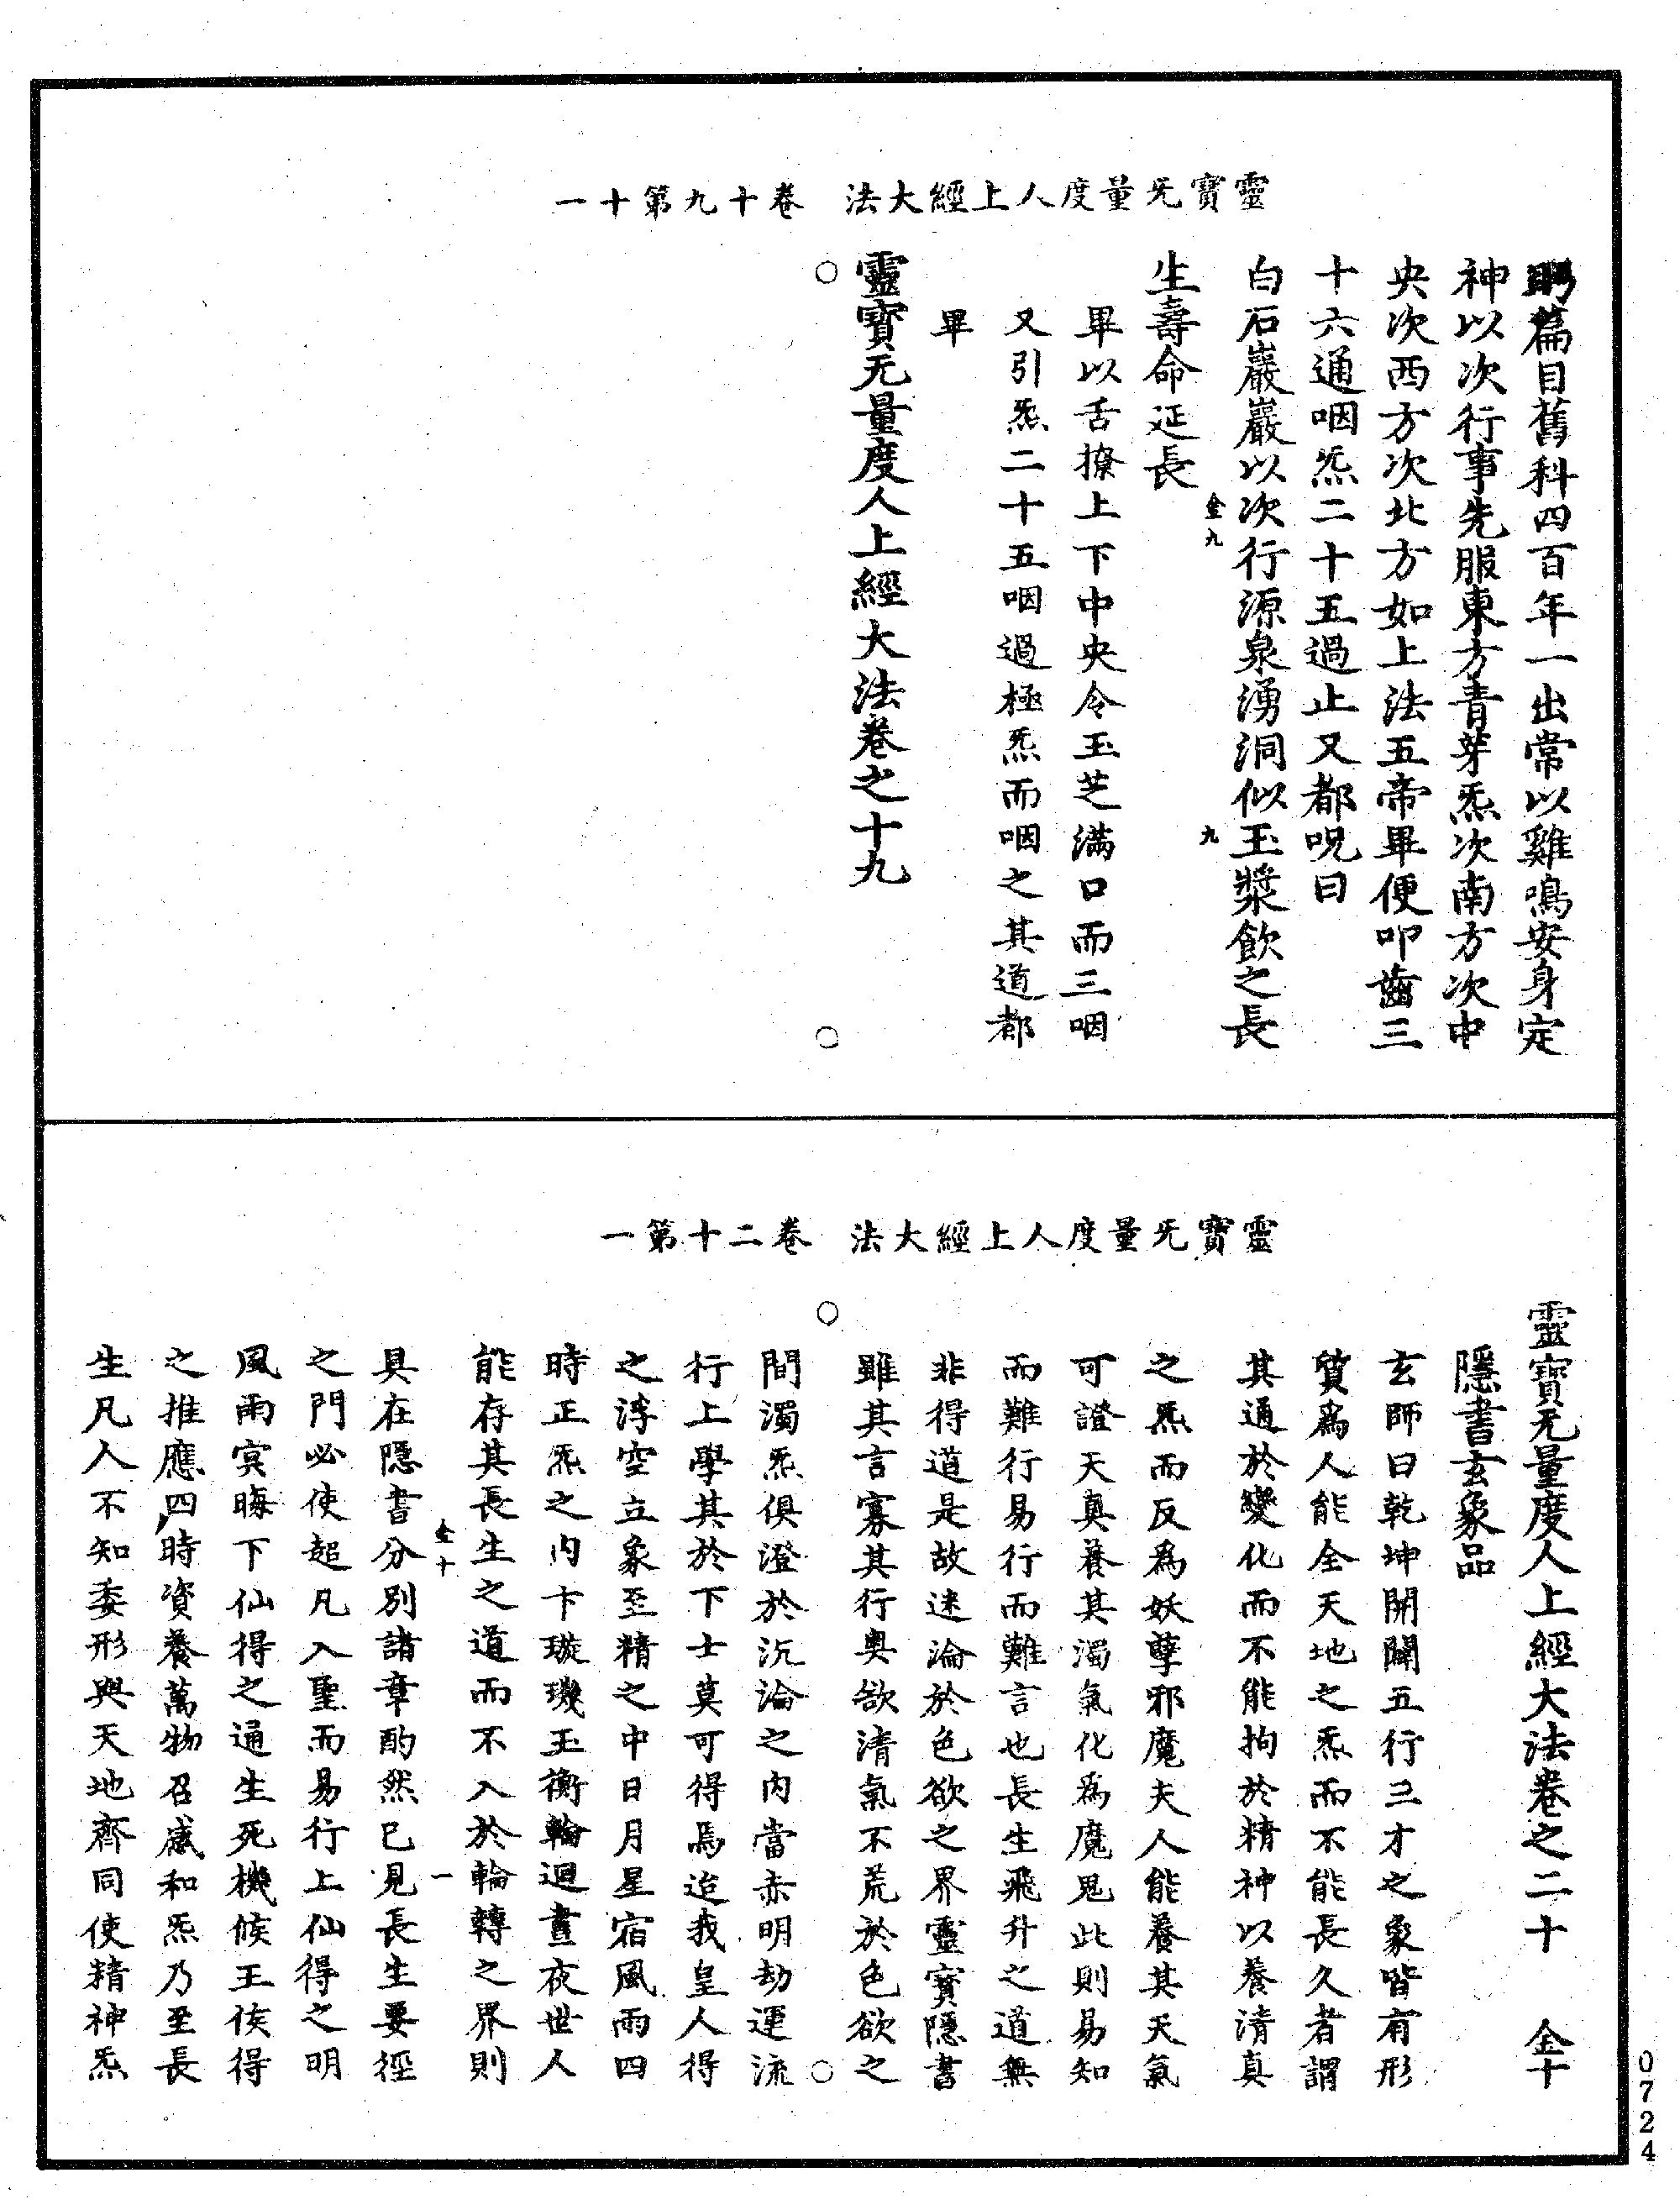 靈寶旡量度人上經大法　卷十九第十一
篇目舊科四百年一出常以雞鳴安身定
神以次行事先服東方青芽炁次南方次中
央次西方次北方如上法五帝畢便叩齒三
十六通咽炁二十五過止又都呪曰
白石巖巖以次行源泉湧洞似玉漿飲之長
金九　九
生壽命延長
畢以舌撩上下中央令玉芝滿口而三咽
又引炁二十五咽過極炁而咽之其道都
畢
靈寶无量度人上經大法卷之十九
靈寶旡量度人上經大法　卷二十第一
靈寶无量度人上經大法卷之二十　金十
隱書玄象品
玄師曰乾坤開闢五行三才之象皆有形
質為人能全天地之炁而不能長久者謂
其通於變化而不能拘於精神以養清真
之炁而反為妖孽邪魔夫人能養其天氣
可證天真養其濁氣化為魔鬼此則易知
而難行易行而難言也長生飛升之道無
非得道是故迷淪於色欲之界靈寶隱書
雖其言寡其行奧欲清氣不荒於色欲之
間濁炁俱澄於沉淪之內當赤明劫運流
行上學其於下士莫可得焉迨我皇人得
之浮空立象至精之中日月星宿風雨四
時正炁之內卞璇璣玉衡輪迴晝夜世人
能存其長生之道而不入於輪轉之界則
金十　一
具在隱書分別諸章酌然已見長生要徑
之門必使超凡入聖而易行上仙得之明
風雨冥晦下仙得之通生死機候王侯得
之推應四時資養萬物召感和炁乃至長
生凡人不知委形與天地齊同使精神炁
0724